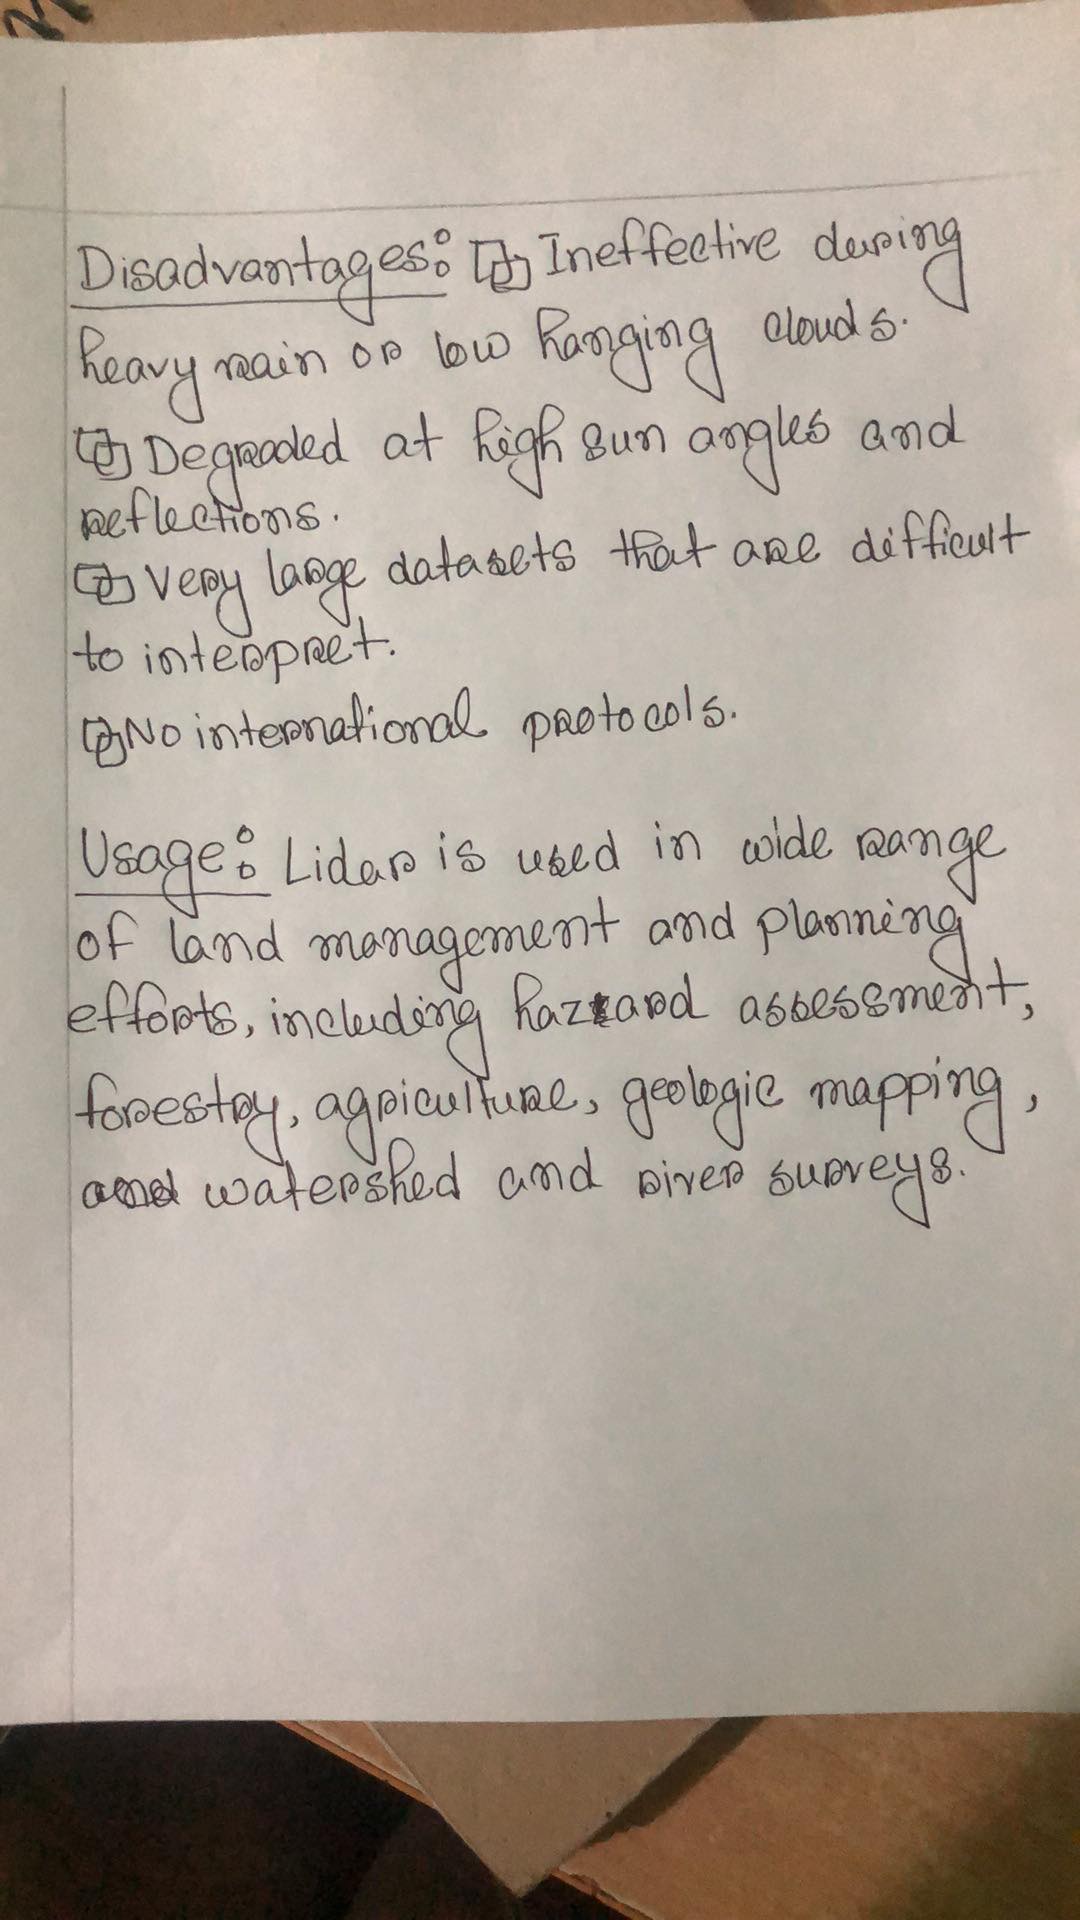 Disadvantages: Ineffective during
heavy rain or low hanging clouds.
Degraded at high sun angles and
reflections.
Very large datasets that are difficult
to interpret.
No international protocols.
Usage: Lidar is used in wide range
of land management and planning
efforts, including hazard assessment,
forestry, agriculture, geologic mapping,
and watershed and river surveys.